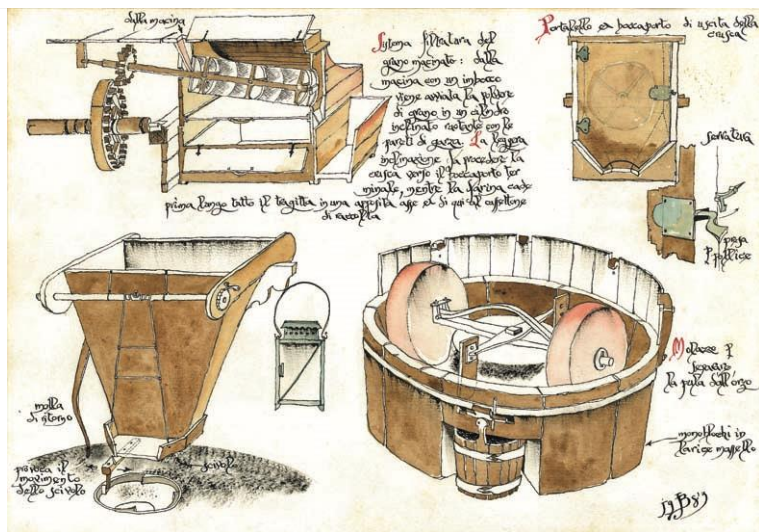 dalla macina
Sistema filtratura del
grano macinato: dalla
macina con un imbocco
viene avviata la polvere
di grano in un cilindro
inclinato rotante con le
pareti di garza. La leggera
inclinazione fa procedere la
crusca verso il boccaporto ter
minale, mentre la farina cade
prima lungo tutto il tragitto in una apposita asse ed di qui al cassettone
di raccolta
Portabello ed boccaporto di uscita della
crusca
serratura
presa
p. pollice
molla
di ritorno
provoca il
movimento
dello scivolo
scivolo
Molazze p.
separare
la pula dall'orzo
monoblocchi in
larice massello
89